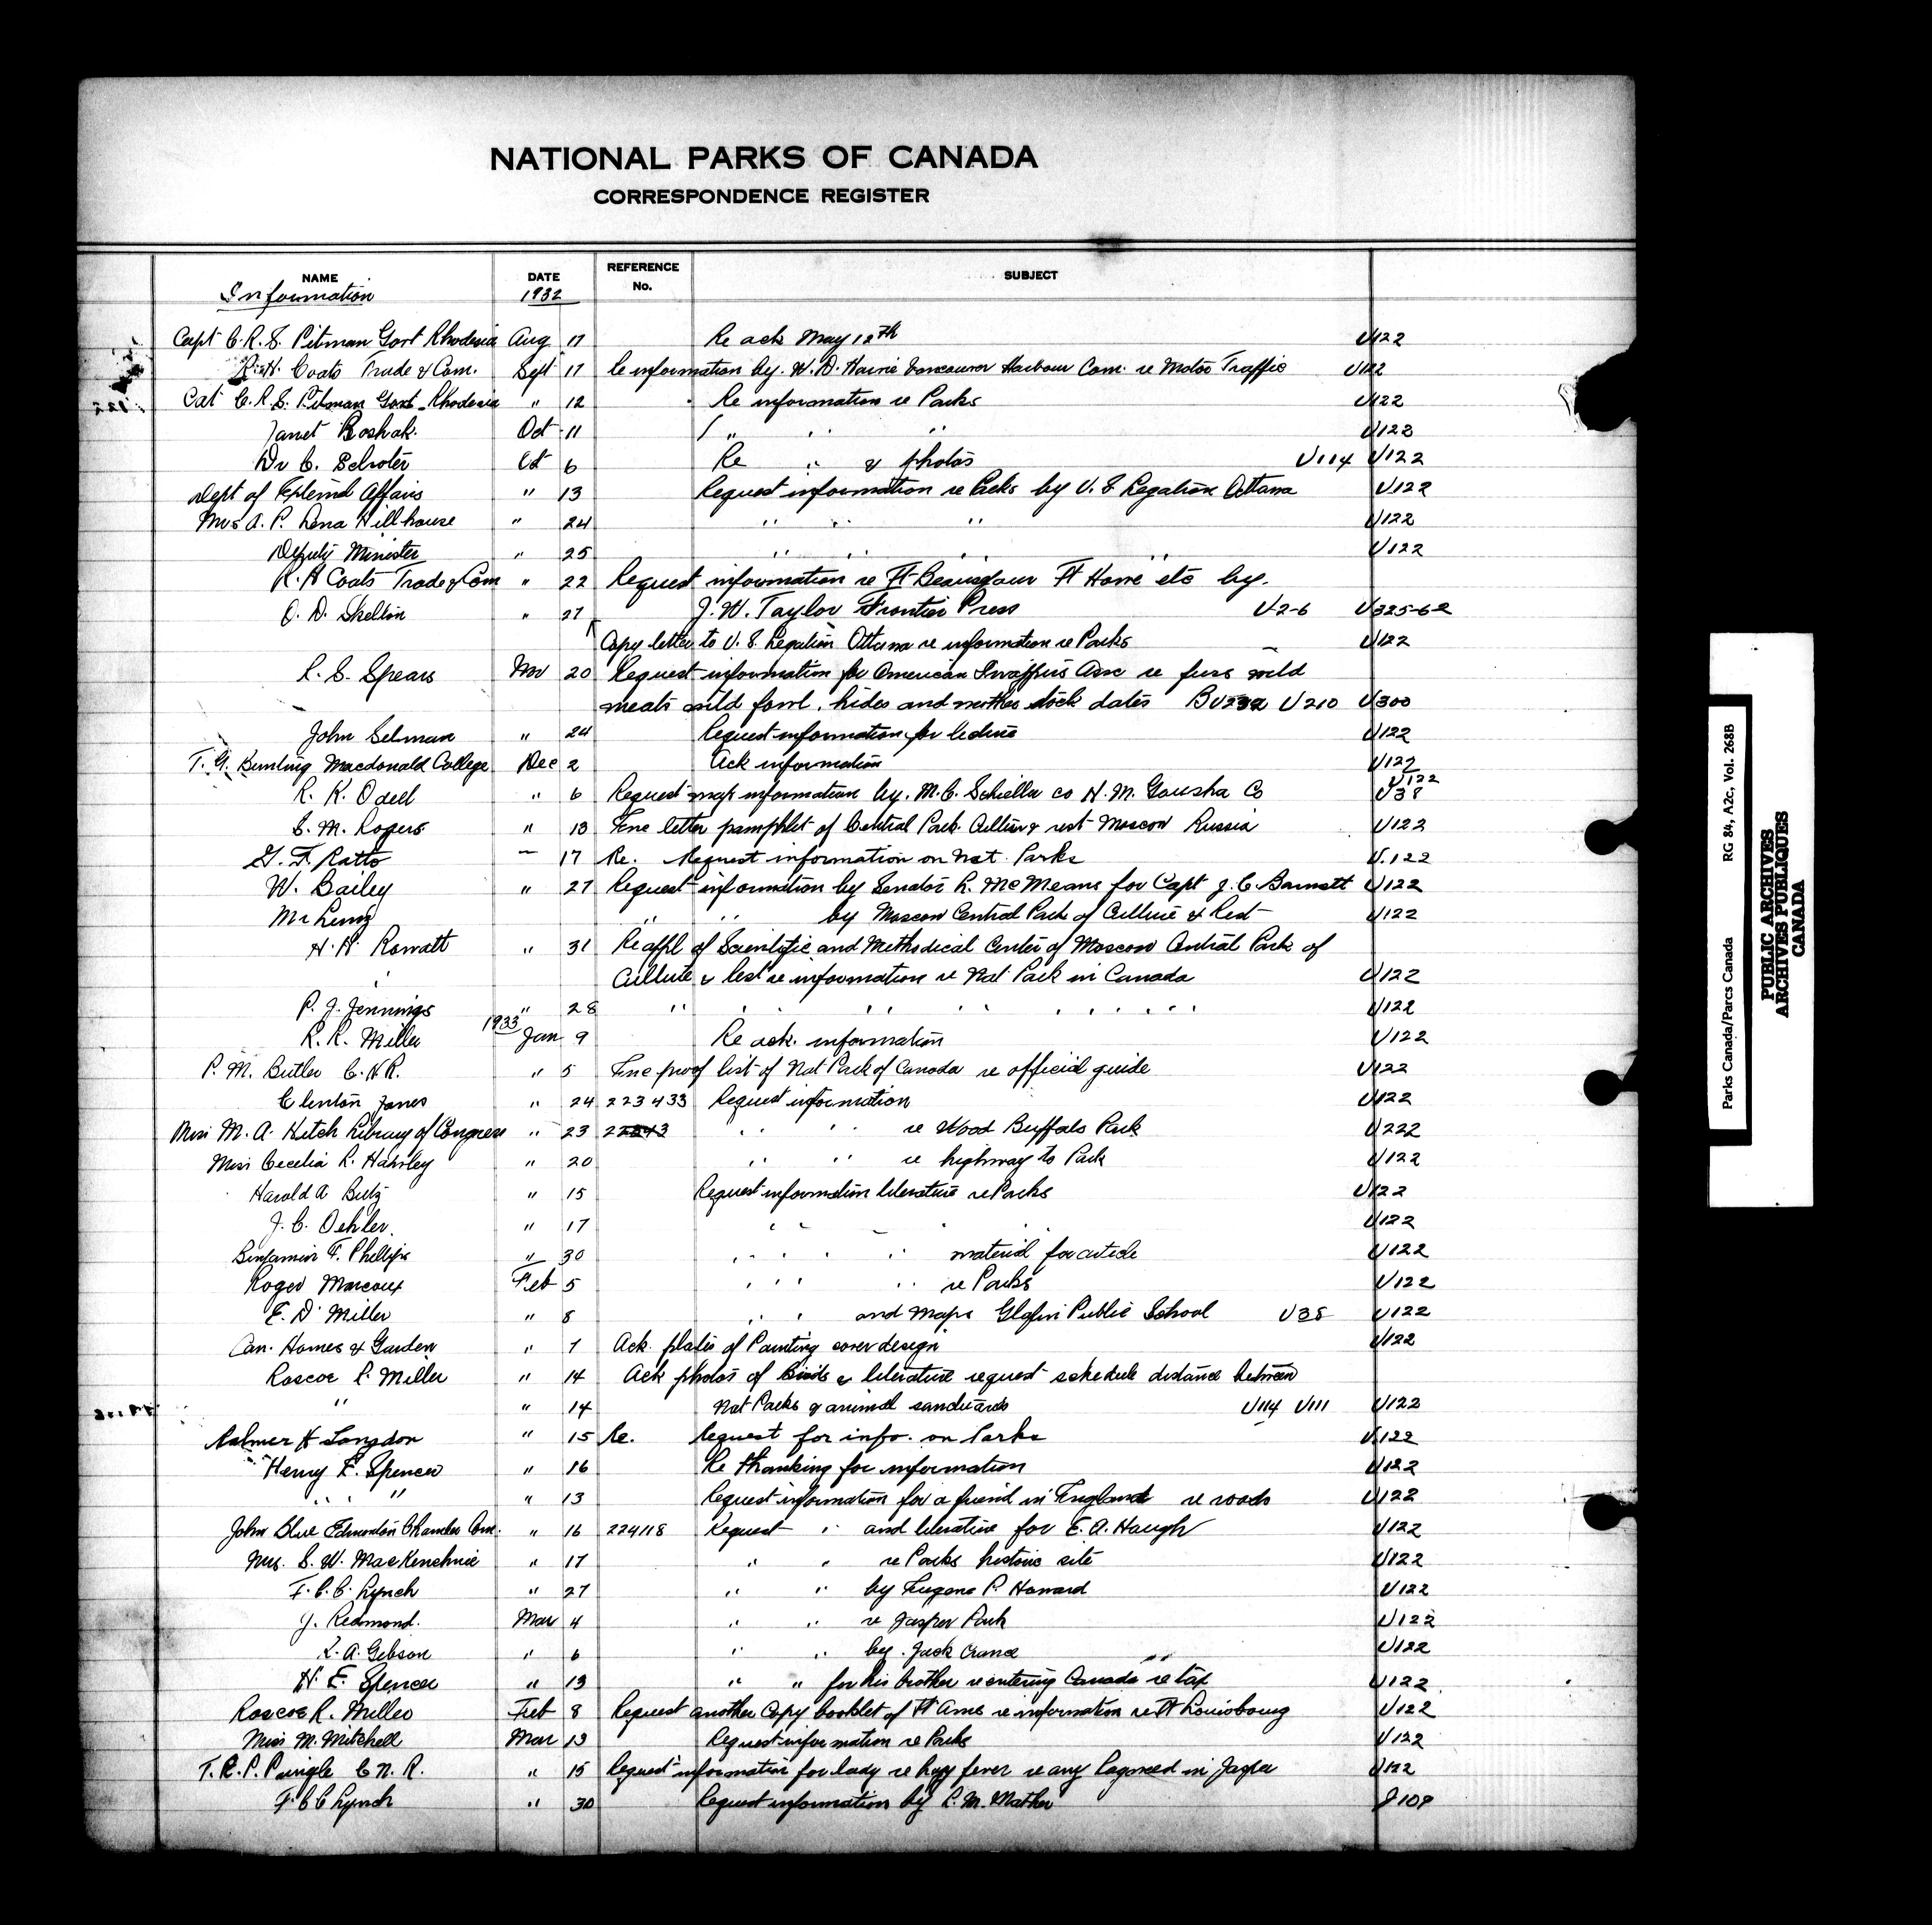 NATIONAL PARKS OF CANADA
CORRESPONDENCE REGISTER
NAME DATE REFERENCE No. SUBJECT
Information 1932
Capt C.R.S. Pitman Govt Rhodesia Aug 17 Re ack May 12th U122
R.H. Coats Trade & Com. Sept 17 Re information by. W.D. Harvie Vancouver Harbour Com. re Motor Traffic U122
Cat C.R.S. Pitman Govt Rhodesia " 12 Re information re Parks U122
Janet Boshak. Oct 11 " " " U123
Dr C. Schroter Oct 6 Re " & photos U114 U122
Dept of External Affairs " 13 Request information re Parks by U.S. Legation Ottawa U122
Mrs A.P. Lena Hillhouse " 24 " " " U122
Deputy Minister " 25 " " " " U122
R.H Coats Trade & Com " 22 Request information re Ft Beausejour Ft Howe etc by.
O.D. Skelton " 27 J.W. Taylor Frontier Press U2-6 U325-62
Copy letter to U.S. Legation Ottawa re information re Parks U122
R.S. Spears Nov 20 Request information for American Trappers Assc re furs wild
meats wild fowl, hides and dates BU232 U210 U300
John Selman " 24 Request information for lecture U122
T.G. Bunting Macdonald College Dec 2 Ack information U122
R.K. Odell " 6 Request map information by. M.C. Schiella co H.M. Gousha Co U122 U38
S.M. Rogers " 13 Enc letter pamphlet of Central Park Culture & rest Moscow Russia U122
G.F. Ratto " 17 Re. Request information on Nat. Parks U.122
W. Bailey " 27 Request information by Senator L. McMeans for Capt J.C. Barnett U122
Mr Lung " " by Moscow Central Park of Culture & Rest U122
H.H. Rowatt " 31 Re appl of Scientific and Methodical Center of Moscow Central Park of
Culture & Rest re information re Nat Park in Canada U122
P.J. Jennings " 28 " " " " " U122
R.R. Miller 1933 Jan 9 Re ack. information U122
P.M. Butler C.N.R. " 5 Enc proof list of Nat Park of Canada re official guide U122
Clenton Jones " 24 223433 Request information U122
Miss M.A. Hitch Library of Congress " 23 22343 " " re Wood Buffalo Park U222
Miss Cecelia L. Hahsley " 20 " " re highway to Park U122
Harold A Butz " 15 Request information literature re Parks U122
J.C. Oehler. " 17 " " " U122
Benjamin F. Phillips " 30 " " " " material for article U122
Roger Marcoux Feb 5 " " " re Parks U122
E.D. Miller " 8 " " and maps Public School U38 U122
Can. Homes & Garden " 1 Ack plates of Painting cover design U122
Roscoe R. Miller " 14 Ack photos of Birds & literature request schedule distance between
" " 14 Nat Parks & animal sanctuaries U114 U111 U122
Palmer H Langdon " 15 Re. Request for info. on Parks U.122
Henry E. Spencer " 16 Re thanking for information U122
" " " " 13 Request information for a friend in England re roads U122
John Blue Edmonton Chamber Com. " 16 224118 Request " and literature for E.A. Haugh U122
Mrs. S.W. MacKenchnie " 17 " " re Parks historic site U122
F.C.C. Lynch " 27 " " by Eugene P. Howard U122
J. Redmond. Mar 4 " " re Jasper Park U122
R.A. Gibson " 6 " " by. Jack Crane U122
H.E. Spencer " 13 " " for his brother re entering Canada re tax U122
Roscoe R. Miller Feb 8 Request another copy booklet of Ft Anne re information re Ft Louisbourg U122
Miss M. Mitchell Mar 13 Request information re Parks U122
T.R.P. Pringle C.N.R. " 15 Request information for lady re hay fever re any Ragweed in Jasper U122
F.C.C Lynch " 30 Request information by R.M. Mather J109
RG 84, A2c, Vol. 268B
Parks Canada/Parcs Canada
PUBLIC ARCHIVES
ARCHIVES PUBLIQUES
CANADA